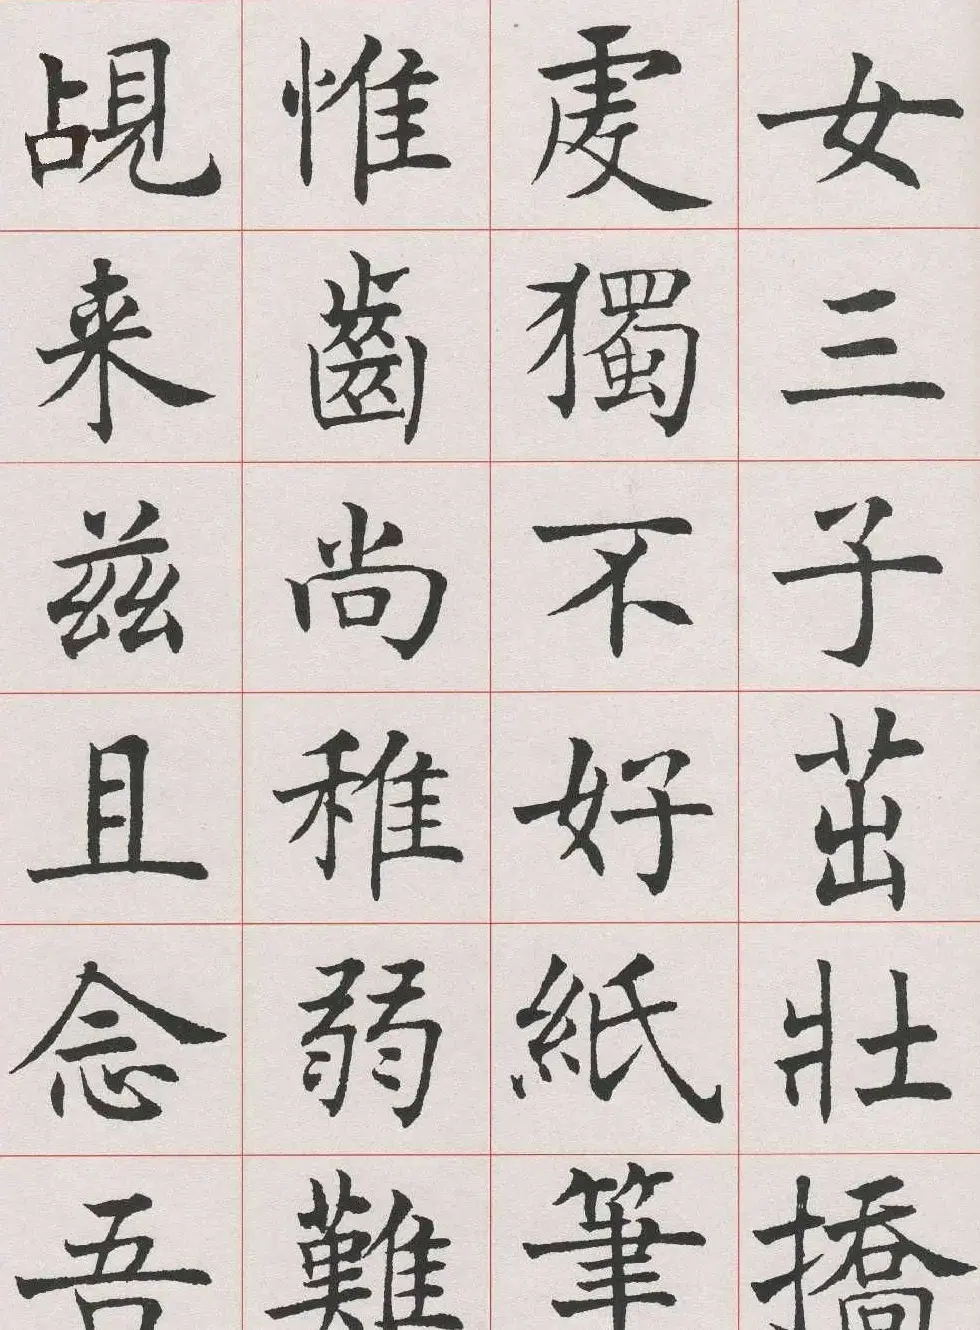 女三子茁壯撟
處獨不好紙筆
惟齒尚稚弱難
覘来茲且念吾